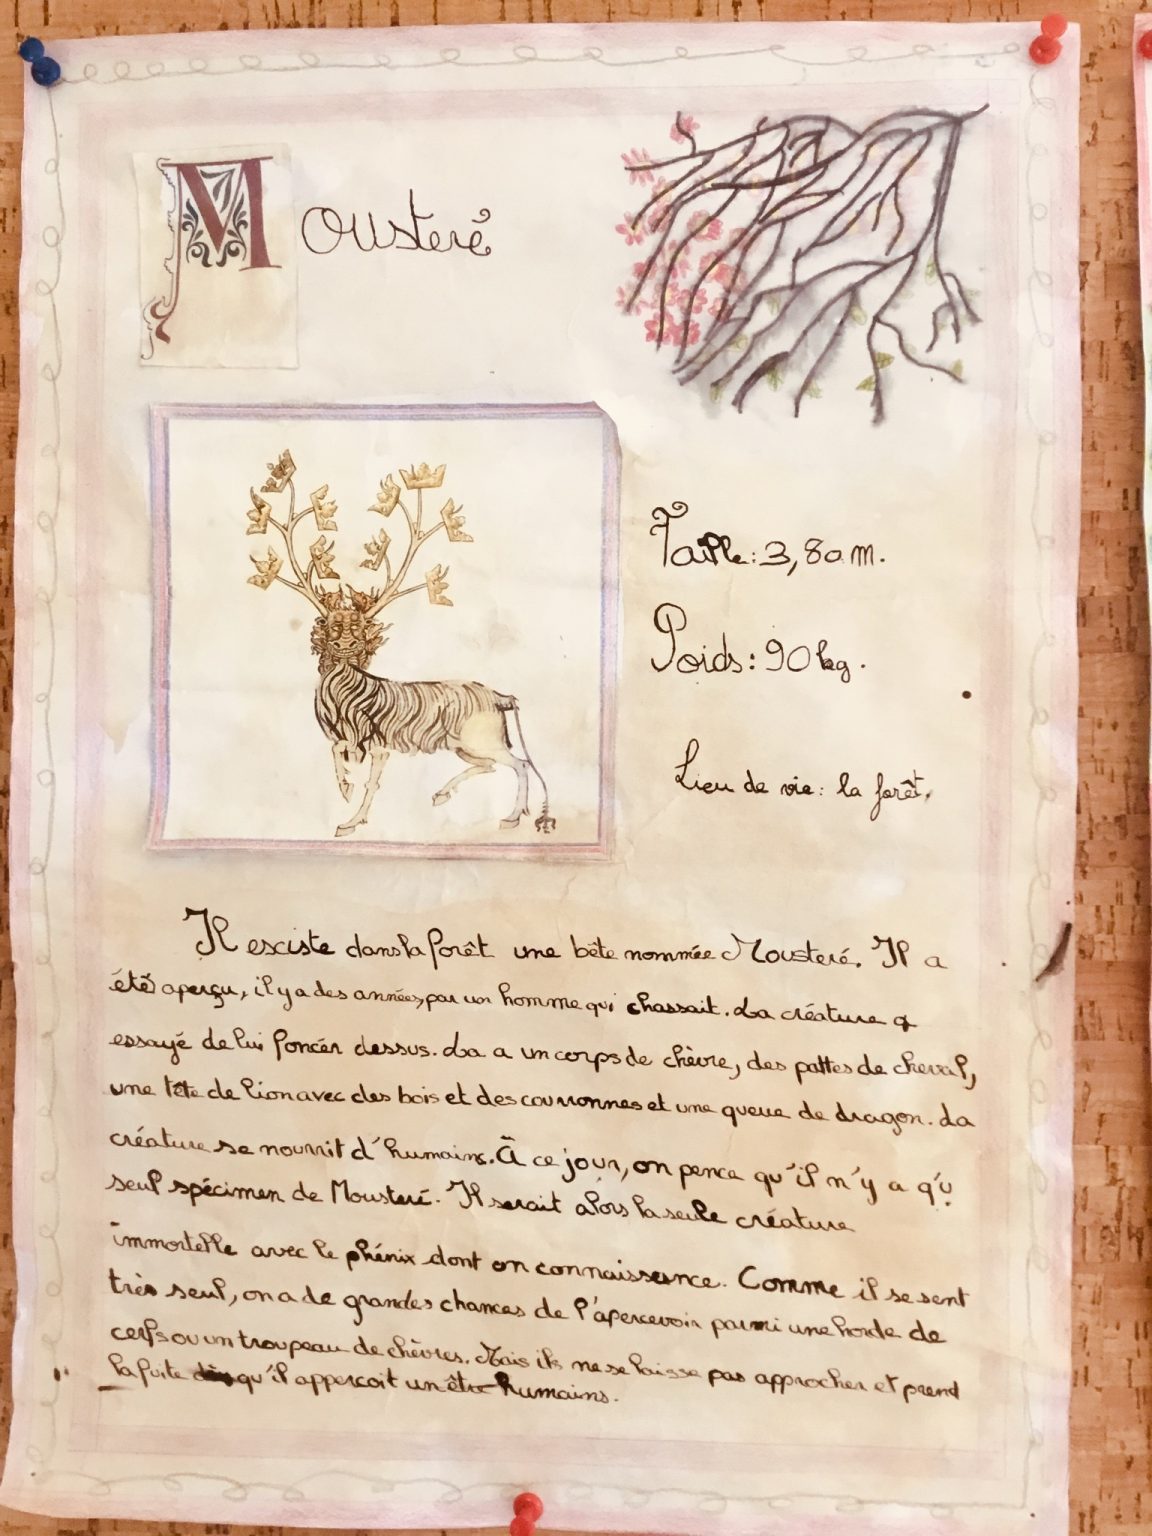 Mousteré
Taille : 3,80 m.
Poids : 90 kg.
Lieu de vie : la forêt.
Il exciste dans la forêt une bête nommée Mousteré. Il a
été aperçu, il y a des années, par un homme qui chassait. La créature a
essayé de lui foncér dessus. La a un corps de chèvre, des pattes de cheval,
une tête de lion avec des bois et des couronnes et une queue de dragon. La
créature se nourrit d'humains. À ce jour, on pence qu'il n'y a q'u
seul spécimen de Mousteré. Il serait alors la seule créature
immortelle avec le phénix dont on connaissance. Comme il se sent
très seul, on a de grandes chances de l'apercevoir parmi une horde de
cerfs ou un troupeau de chèvres. Mais ils ne se laisse pas approcher et prend
la fuite dès qu'il apperçoit un être humains.